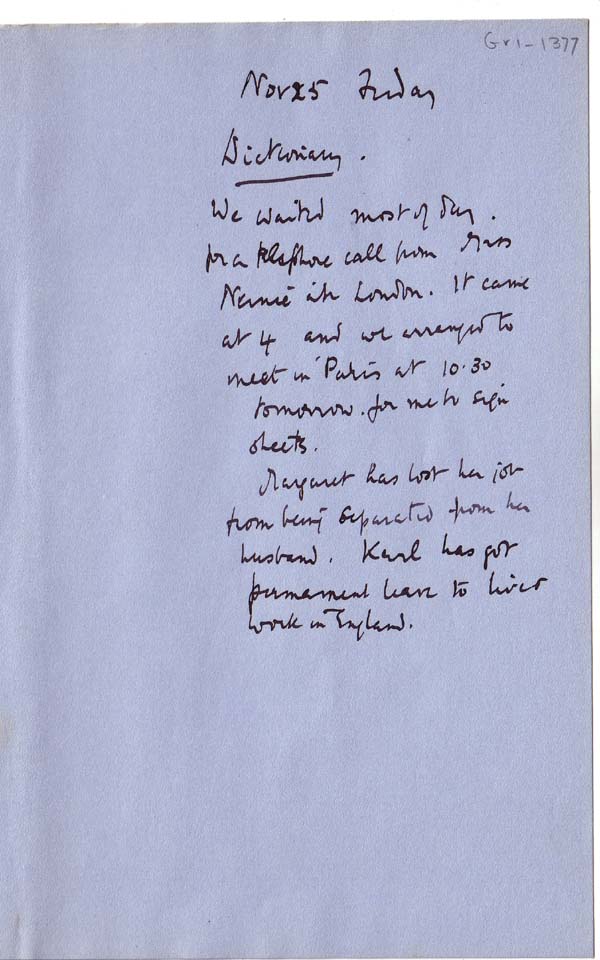 Gr1-1377
Nov 25 Friday
Dictionary.
We waited most of day.
for a telephone call from Miss
in London. It came
at 4 and we arranged to
meet in Paris at 10.30
tomorrow. for me to sign
sheets.
Margaret has lost her job
from being separated from her
husband. Karl has got
permament leave to live &
work in England.